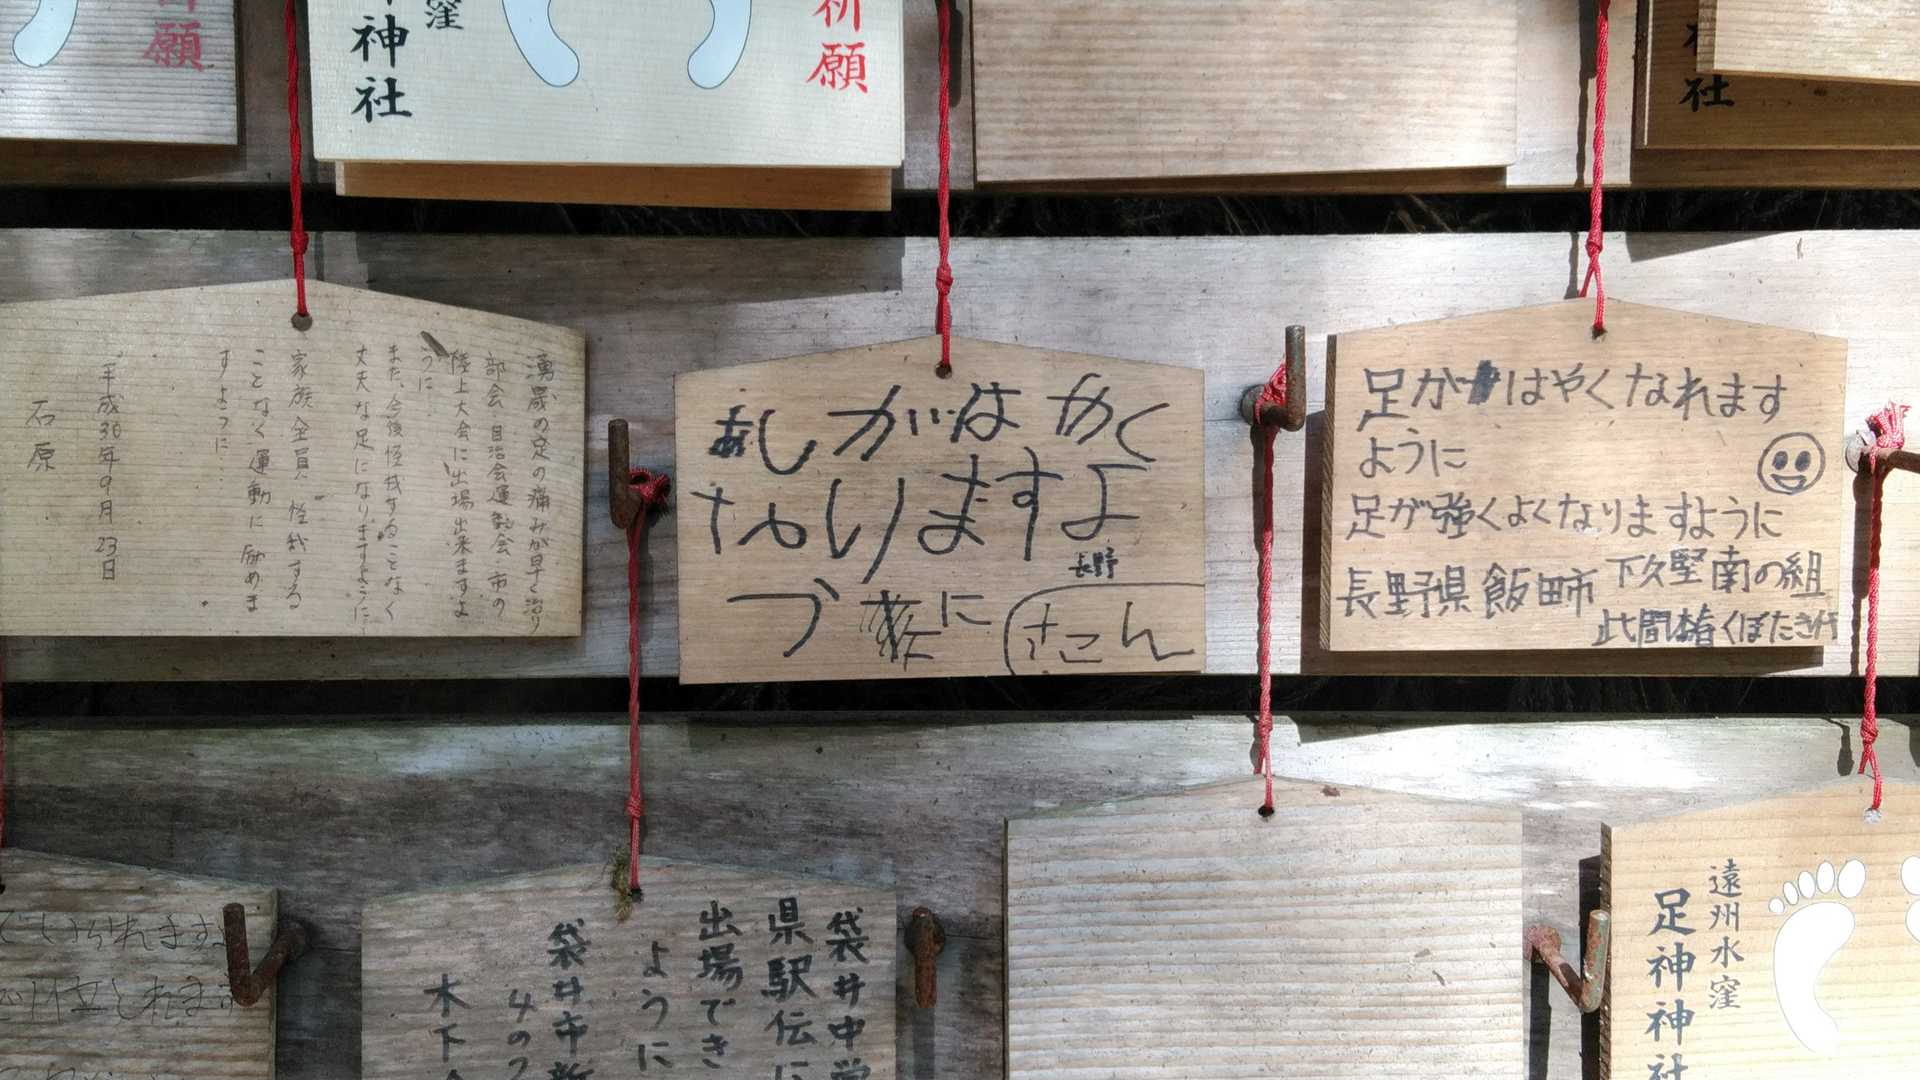 願
窪
神社
祈願
社
湧歳の足の痛みが早く治り
部会 自治会運動会・市の
陸上大会に出場出来ますよ
うに
また、今後怪我することなく
丈夫な足になりますように
家族全員、怪我する
ことなく運動に励めま
すように
平成30年9月23日
石原
あしがはやく
なりますよ
に
長野
さこん
足がはやくなれます
ように
足が強くよくなりますように
長野県飯田市 下久堅南の組
袋井中学
県駅伝に
出場でき
ように
袋井市新
木下
遠州水窪
足神神社